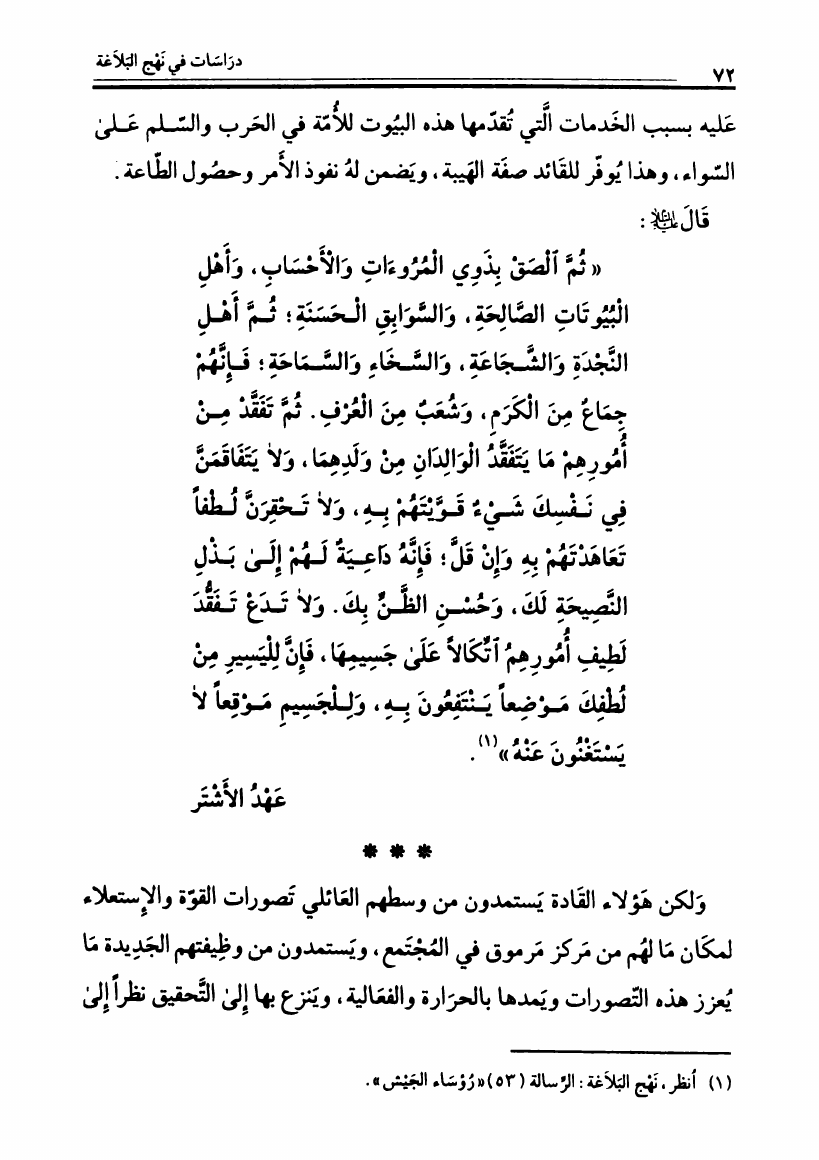 ٧٢
دراسات في نَهْج البَلاَغة
عَليه بسبب الخَدمات الَّتي تُقدّمها هذه البيُوت للأُمّة في الحَرب والسّلم عَلىٰ
السّواء، وهذا يُوفّر للقَائد صفَة الهَيبة، ويَضمن لهُ نفوذ الأَمر وحصُول الطّاعة.
قَالَ عليه السلام :
« ثُمَّ ٱلْصَقْ بِذَوِي الْمُرُوءَاتِ وَالْأَحْسَابِ، وَأَهْلِ
الْبُيُوتَاتِ الصَّالِحَةِ، وَالسَّوَابِقِ الْحَسَنَةِ؛ ثُمَّ أَهْلِ
النَّجْدَةِ وَالشَّجَاعَةِ، وَالسَّخَاءِ وَالسَّمَاحَةِ؛ فَإِنَّهُمْ
جِمَاعٌ مِنَ الْكَرَمِ، وَشُعَبٌ مِنَ الْعُرْفِ. ثُمَّ تَفَقَّدْ مِنْ
أُمُورِهِمْ مَا يَتَفَقَّدُ الْوَالِدَانِ مِنْ وَلَدِهِمَا، وَلاَ يَتَفَاقَمَنَّ
فِي نَفْسِكَ شَيْءٌ قَوَّيْتَهُمْ بِهِ، وَلاَ تَحْقِرَنَّ لُطْفاً
تَعَاهَدْتَهُمْ بِهِ وَإِنْ قَلَّ؛ فَإِنَّهُ دَاعِيَةٌ لَهُمْ إِلَىٰ بَذْلِ
النَّصِيحَةِ لَكَ، وَحُسْنِ الظَّنِّ بِكَ. وَلاَ تَدَعْ تَفَقُّدَ
لَطِيفِ أُمُورِهِمُ ٱتِّكَالاً عَلَىٰ جَسِيمِهَا، فَإِنَّ لِلْيَسِيرِ مِنْ
لُطْفِكَ مَوْضِعاً يَنْتَفِعُونَ بِهِ، وَلِلْجَسِيمِ مَوْقِعاً لاَ
يَسْتَغْنُونَ عَنْهُ»(١).
عَهْدُ الأَشْتَر
* * *
وَلكن هَؤلاء القَادة يَستمدون من وسطهم العَائلي تَصورات القوّة والإستعلاء
لمكَان مَا لهُم من مَركز مَرموق في المُجْتَمع، ويَستمدون من وظِيفتهم الجَديدة مَا
يُعزز هذه التّصورات ويَمدها بالحرَارة والفعَالية، ويَنزع بها إِلىٰ التَّحقيق نظراً إِلىٰ
(١) اُنظر، نَهْج البَلاَغة: الرّسالة (٥٣) «رُؤسَاء الجَيْش».